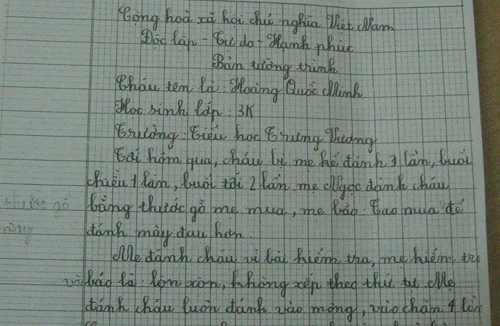 Cộng hoà xã hội chủ nghĩa Việt Nam
Độc lập - Tự do - Hạnh phúc
Bản tường trình
Cháu tên là : Hoàng Quốc Minh
Học sinh lớp : 3K
Trường : Tiểu học Trưng Vương
Tối hôm qua, cháu bị mẹ kế đánh 3 lần, buổi
chiều 1 lần, buổi tối 2 lần mẹ Ngọc đánh cháu
bằng thước gỗ mẹ mua, mẹ bảo Tao mua để
đánh mày đau hơn.
Mẹ đánh cháu vì bài kiểm tra, mẹ kiểm tra
và bảo là lộn xộn, không xếp theo thứ tự. Mẹ
đánh cháu luôn đánh vào mông, vào chân 4 lần